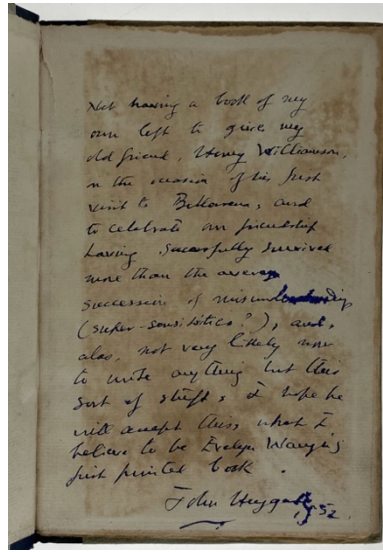 Not having a book of my
own left to give my
old friend, Henry Williamson,
on the occasion of his first
visit to Bellarena, and
to celebrate our friendship
having successfully survived
more than the average
succession of misunderstandings
(super-sensibilities?), and,
also, not very likely now
to write anything but this
sort of stuff, I hope he
will accept this what I
believe to be Evelyn Waugh's
first printed book.
John Heygate
1952.